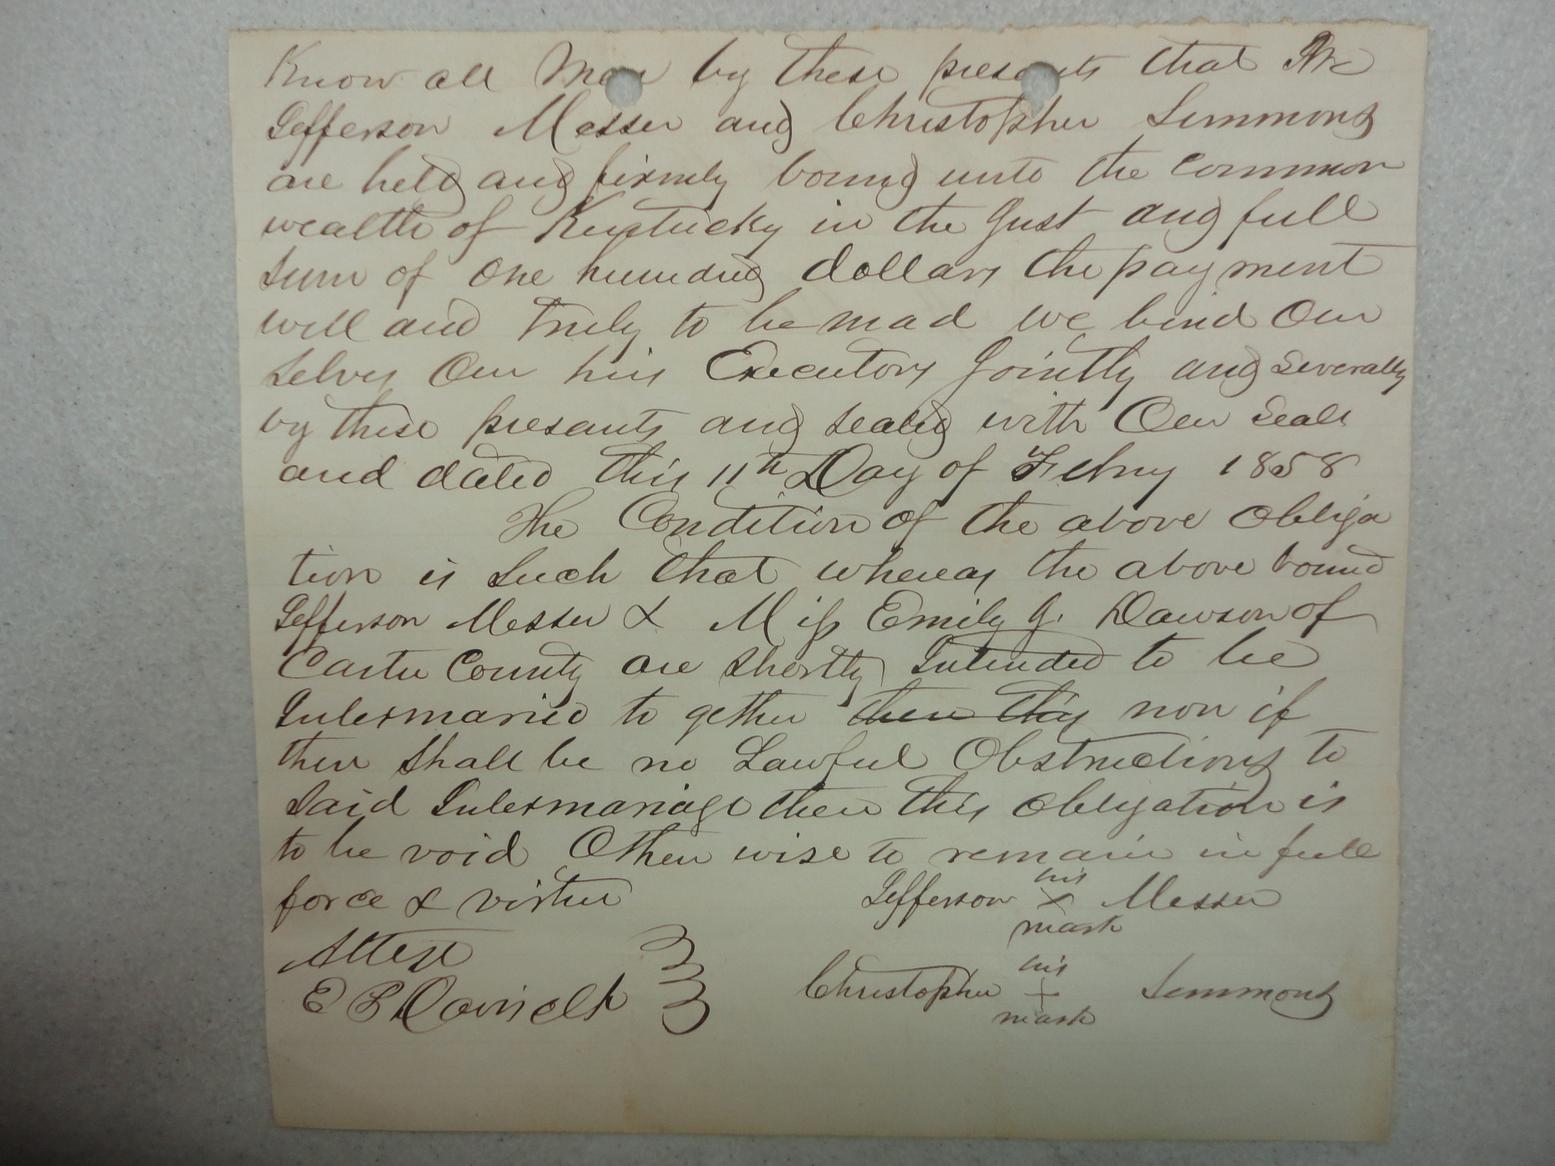 Know all Men by these presents that We
Jefferson Messer and Christopher Semmons
are held and firmly bound unto the common
wealth of Kentucky in the Just and full
Sum of One hundred dollars the payment
well and truly to be mad we bind Our
selves Our hirs Executors Jointly and severally
by these presants and sealed with Our Seals
and dated this 11th Day of Febry 1858
The Condition of the above obliga
tion is Such that whereas the above bound
Jefferson Messer & Miss Emily J. Dawson of
Carter County are shortly Intended to be
Intermaried to gether then this now if
their shall be no Lawful Obstructions to
Said Intermariage then this obligation is
to be void Other wise to remain in full
force & virtue
Jefferson his X mark Messer
Attest
Christopher his + mark Semmons
E P